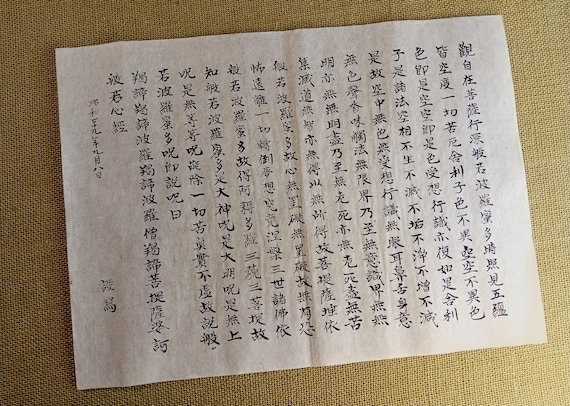 觀自在菩薩行深般若波羅蜜多時照見五蘊
皆空度一切苦厄舍利子色不異空空不異色
色即是空空即是色受想行識亦復如是舍利
子是諸法空相不生不滅不垢不淨不增不減
是故空中無色無受想行識無眼耳鼻舌身意
無色聲香味觸法無限界乃至無意識界無無
明亦無無明盡乃至無老死亦無老死盡無苦
集滅道無智亦無得以無所得故菩提薩埵依
般若波羅蜜多故心無罣礙無罣礙故無有恐
怖遠離一切顛倒夢想究竟涅槃三世諸佛依
般若波羅蜜多故得阿耨多羅三藐三菩提故
知般若波羅蜜多是大神呪是大明呪是無上
呪是無等等呪能除一切苦真實不虛故説般
若波羅蜜多呪即説呪曰
羯諦羯諦波羅羯諦波羅僧羯諦菩提薩婆訶
般若心經
昭和五十九年九月八日
謹寫